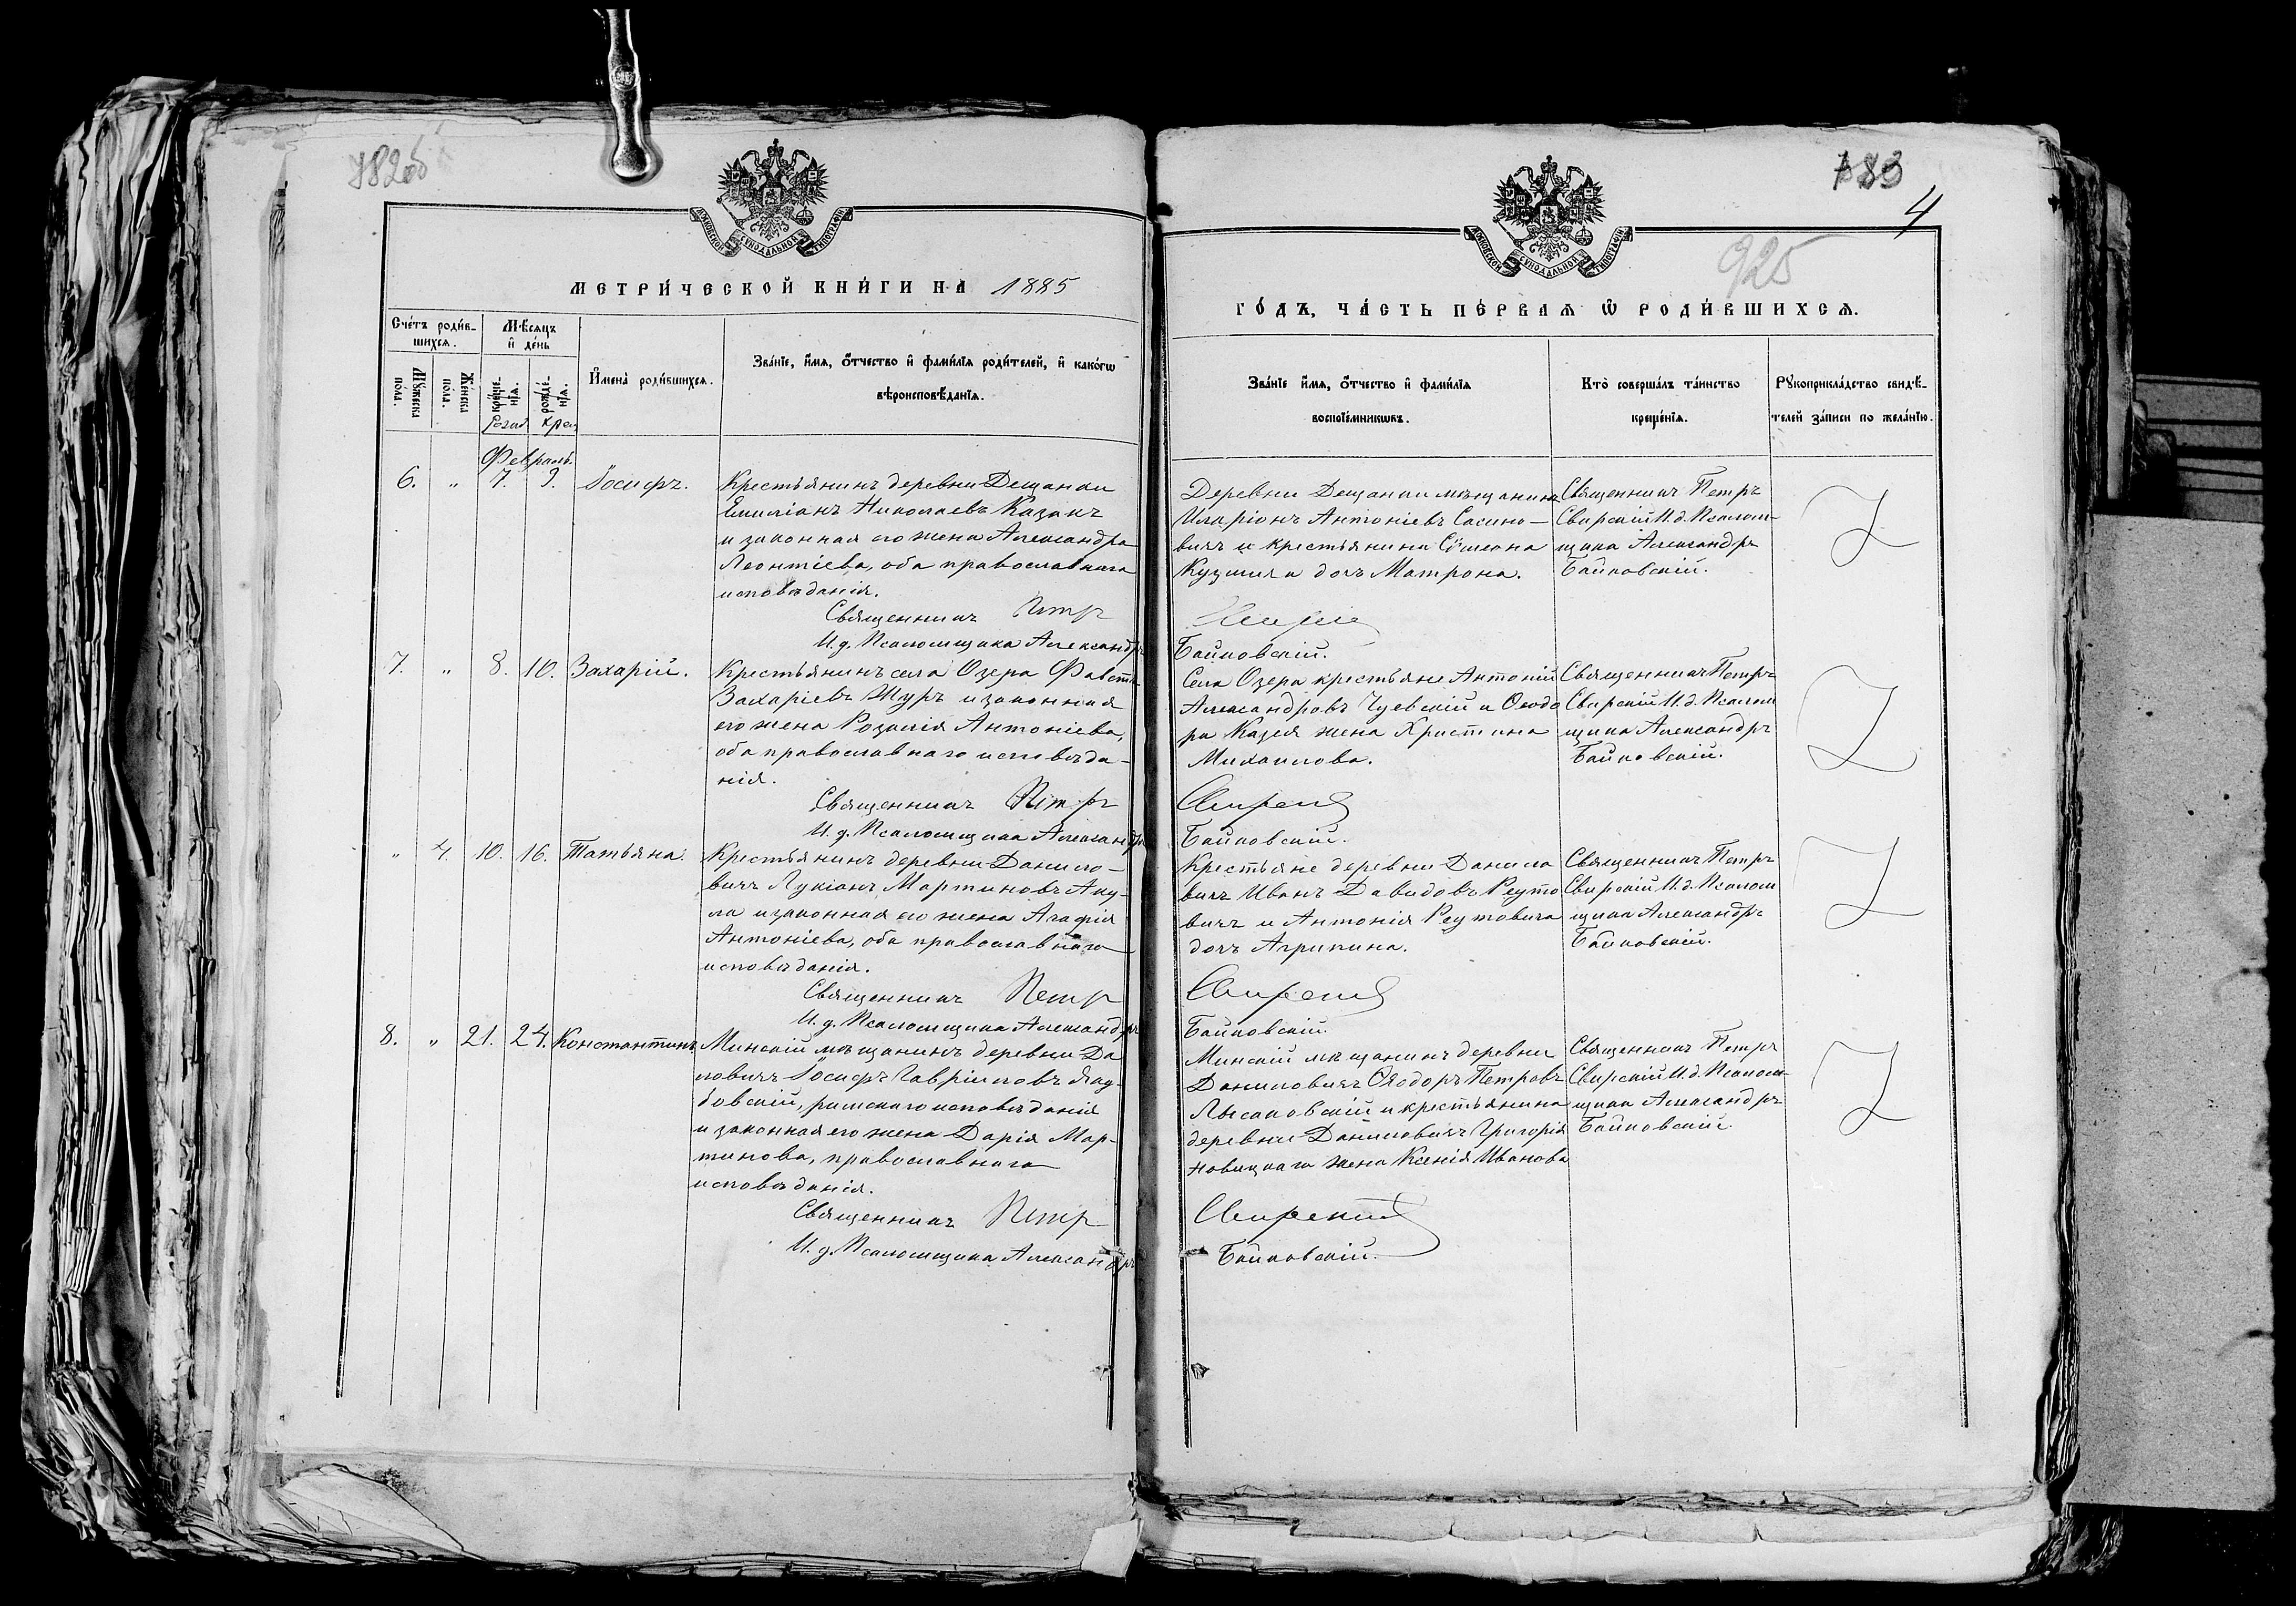 925
4
МОСКОВСКОЙ СѴНОДАЛЬНОЙ ТИПОГРАФІИ
МЕТРИ́ЧЕСКОЙ КНИ́ГИ НА 1885
МОСКОВСКОЙ СѴНОДАЛЬНОЙ ТИПОГРАФІИ
ГО́ДЪ, ЧА́СТЬ ПЕ́РВАѦ Ѽ РОДИ́ВШИХСѦ.
Сче́тъ роди́в-
шихсѧ.
Мꙋ́жеска по́ла.
Же́нска по́ла.
Мѣ́сѧцъ
и҆ де́нь
креще́-
нїѧ.
рожде́-
нїѧ.
Рожд Крещ
И҆мена̀ роди́вшихсѧ.
Зва́нїе, и҆́мѧ, ѻ҆́тчество и҆ фами́лїѧ роди́телей, и҆ како́гѡ
вѣроисповѣ́данїѧ.
Зва́нїе и҆́мѧ, ѻ҆́тчество и҆ фами́лїѧ
воспрїе́мникѡвъ.
Кто̀ соверша́лъ та́инство
креще́нїѧ.
Рꙋкоприкла́дство свидѣ́-
телей за́писи по жела́нїю.
Февраль.
6. „ 7. 9. Іосифъ.
Крестьянинъ деревни Дещанки
Емиліанъ Николаевъ Казакъ
и законная его жена Александра
Леонтіева, оба православнаго
исповѣданія.
Священникъ Петръ
И. д. Псаломщика Александръ
Деревни Дещанки мѣщанинъ
Иларіонъ Антоніевъ Сасино-
вичъ и крестьянина Сѵмеона
Кузмича дочь Матрона.
Свирскій
Байковскій.
Священникъ Петръ
Свирскій И. д. Псалом-
щика Александръ
Байковскій.
7. „ 8. 10. Захарій.
Крестьянинъ села Озера Фавстъ
Захаріевъ Шуръ и законная
его жена Розалія Антоніева,
оба православнаго исповѣда-
нія.
Священникъ Петръ
И. д. Псаломщика Александръ
Села Озера крестьяне Антоній
Александровъ Чуевскій и Ѳеодо
ра Казея жена Христина
Михаилова.
Свирскій
Байковскій.
Священникъ Петръ
Свирскій И. д. Псалом
щика Александръ
Байковскій.
„ 4. 10. 16. Татьяна.
Крестьянинъ деревни Данило-
вичъ Лукіанъ Мартиновъ Аку-
ла и законная его жена Агафія
Антоніева, оба православнаго
исповѣданія.
Священникъ Петръ
И. д. Псаломщика Александръ
Крестьяне деревни Данила
вичъ Иванъ Давидовъ Реуто
вичъ и Антонія Реутовича
дочь Агрипина.
Свирскій
Байковскій.
Священникъ Петръ
Свирскій И. д. Псалом
щика Александръ
Байковскій.
8. „ 21. 24. Константинъ
Минскій мѣщанинъ деревни Да
ловичъ Іосифъ Гавріиловъ
римскаго исповѣданія
и законная его жена Дарія Мар-
тинова, православнаго
исповѣданія.
Священникъ Петръ
И. д. Псаломщика Александръ
Минскій мѣщанинъ деревни
Даниловичъ Ѳеодоръ Петровъ
Лысаковскій и крестьянина
деревни Даниловичъ Григорія
Новицкаго жена Ксенія Иванова
Свирскій
Байковскій.
Священникъ Петръ
Свирскій И. д. Псалом-
щика Александръ
Байковскій